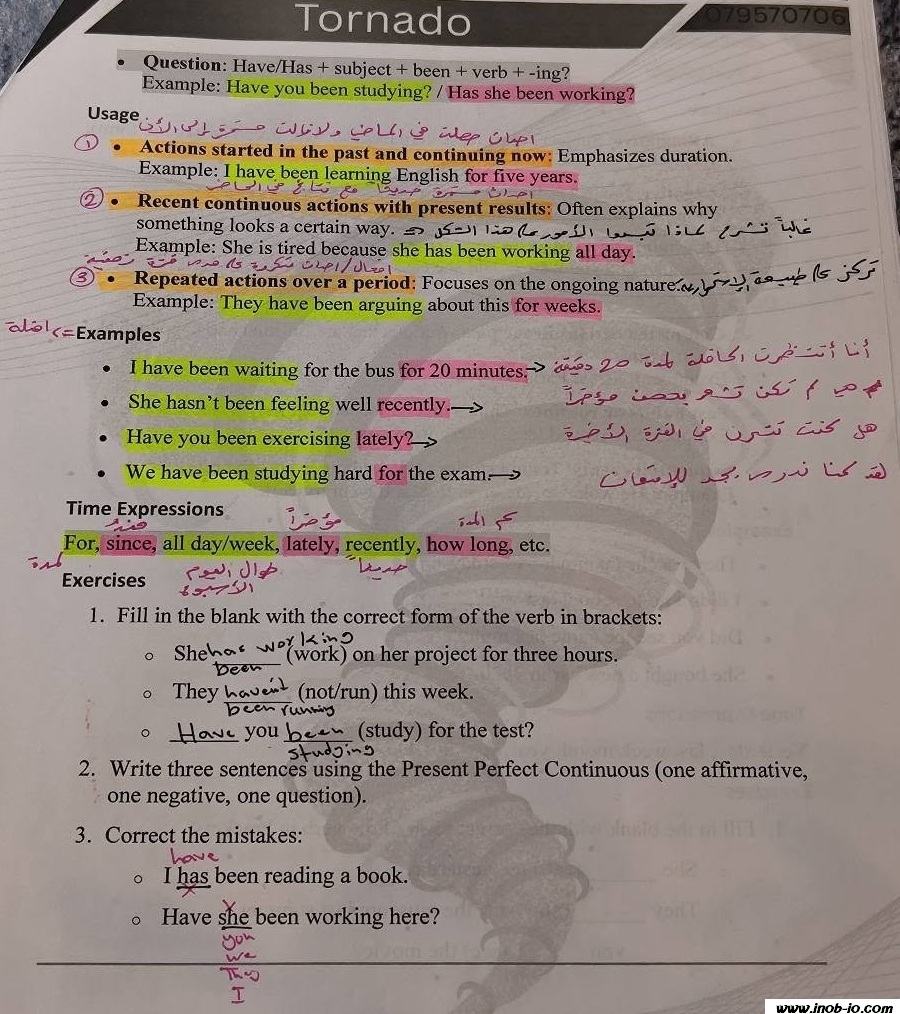 Tornado
079570706
• Question: Have/Has + subject + been + verb + -ing?
Example: Have you been studying? / Has she been working?
Usage
احداث حصلت في الماضي ولازالت مستمرة إلى الآن
① • Actions started in the past and continuing now: Emphasizes duration.
Example: I have been learning English for five years.
احداث مستمرة حديثاً مع نتائج في الحاضر
② • Recent continuous actions with present results: Often explains why
something looks a certain way. غالباً تشرح لماذا تبدو الأمور على هذا الشكل
Example: She is tired because she has been working all day.
افعال/احداث متكررة على مدى فترة زمنية
③ • Repeated actions over a period: Focuses on the ongoing nature. تركز على طبيعة الإستمرارية
Example: They have been arguing about this for weeks.
امثلة <= Examples
• I have been waiting for the bus for 20 minutes. → أنا أنتظرت الحافلة لمدة 20 دقيقة
• She hasn't been feeling well recently. → هي لم تكن تشعر مؤخراً
• Have you been exercising lately? → هل كنت تتمرن في الفترة الأخيرة
• We have been studying hard for the exam. → لقد كنا ندرس بجد للإمتحان
Time Expressions
منذ مؤخراً كم المدة
For, since, all day/week, lately, recently, how long, etc.
لمدة طوال اليوم حديثاً
الأسبوع
Exercises
1. Fill in the blank with the correct form of the verb in brackets:
○ She has working (work) on her project for three hours.
been
○ They haven't (not/run) this week.
been running
○ Have you been (study) for the test?
studying
2. Write three sentences using the Present Perfect Continuous (one affirmative,
one negative, one question).
3. Correct the mistakes:
have
○ I has been reading a book.
x
x
○ Have she been working here?
you
we
They
I
www.inob-io.com